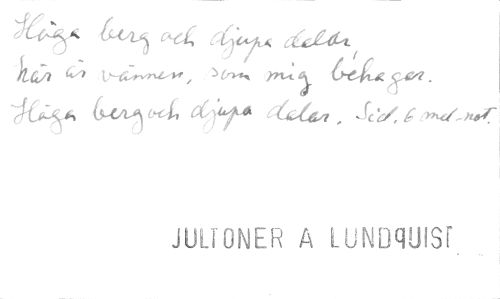 Höga berg och djupa dalar,
här är vännen, som mig behagar.
Höga berg och djupa dalar. Sid. 6 mel-not.
JULTONER A LUNDQUIST